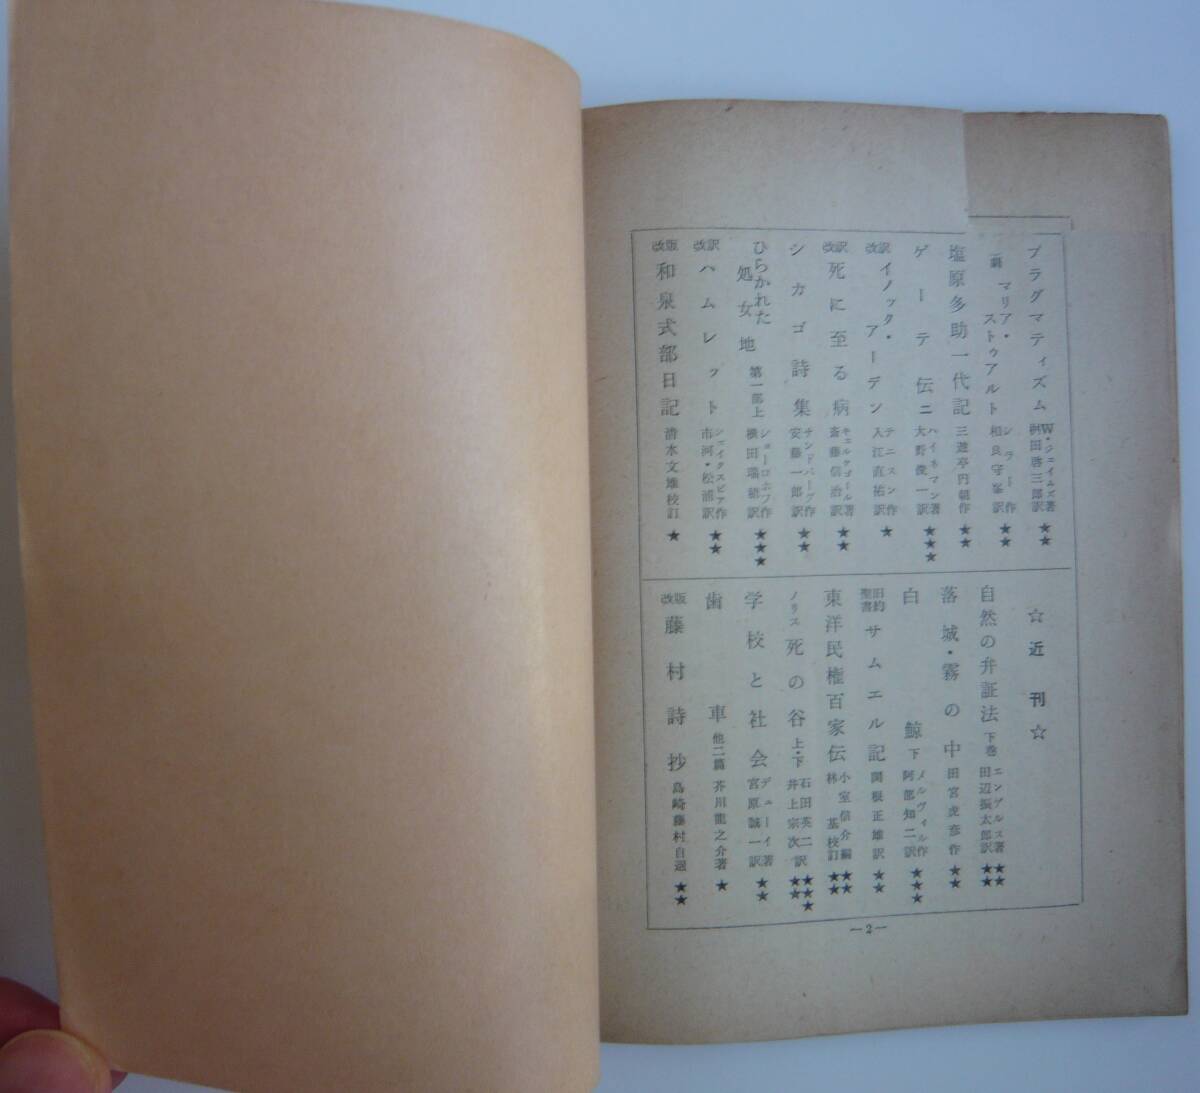 プラグマティズム W・ジェイムズ著 桝田啓三郎訳 ★★
劇 マリア・ストゥアルト シラー作 相良守峯訳 ★★
塩原多助一代記 三遊亭円朝作 ★★
ゲーテ伝 二 ハイネマン著 大野俊一訳 ★★★
改訳 イノック・アーデン テニスン作 入江直祐訳 ★
改訳 死に至る病 キェルケゴール著 斎藤信治訳 ★★
シカゴ詩集 サンドバーグ作 安藤一郎訳 ★★
ひらかれた処女地 第一部上 ショーロホフ作 横田瑞穂訳 ★★★
改訳 ハムレット シェイクスピア作 市河・松浦訳 ★★
改版 和泉式部日記 清水文雄校訂 ★
☆近刊☆
自然の弁証法 下巻 エンゲルス著 田辺振太郎訳 ★★★★
落城・霧の中 田宮虎彦作 ★★
白鯨 下 メルヴィル作 阿部知二訳 ★★★
旧約聖書 サムエル記 関根正雄訳 ★★
東洋民権百家伝 小室信介編 林基校訂 ★★★★
ノリス 死の谷 上・下 石田英二 井上宗次訳 ★★★★★
学校と社会 デューイ著 宮原誠一訳 ★★
歯車 他二篇 芥川龍之介著 ★
改版 藤村詩抄 島崎藤村自選 ★★
—2—